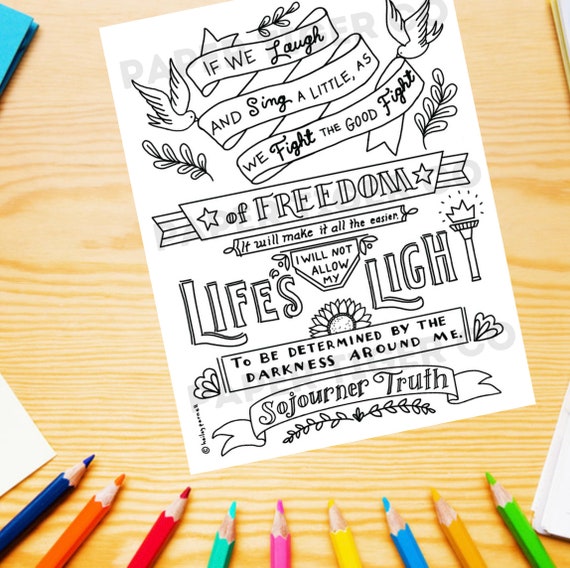 IF WE Laugh
AND Sing A LITTLE, AS
WE Fight THE GOOD Fight
of FREEDOM
It will make it all the easier.
I WILL NOT
ALLOW
MY
LIFE'S LIGHT
TO BE DETERMINED BY THE
DARKNESS AROUND ME.
Sojourner Truth
PAPER TIGER CO
PAPER TIGER CO